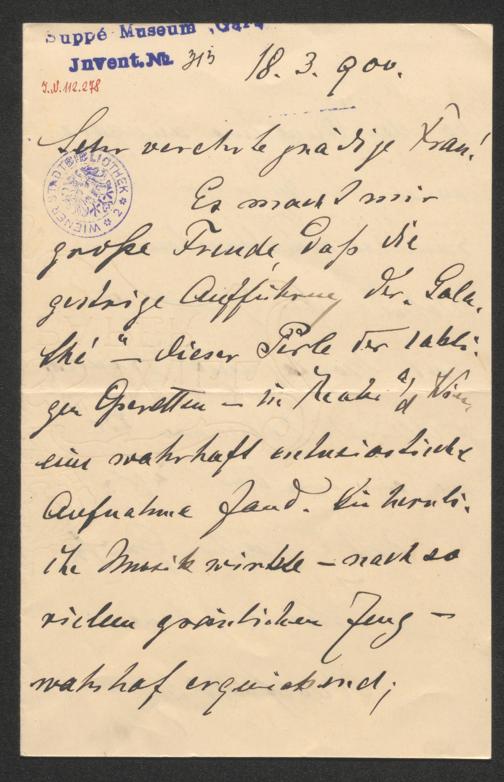 Suppé Museum „Gars
Jnvent. No. 313
J.N. 112.278
18. 3. 900.
WIENER STADTBIBLIOTHEK * 2 *
Sehr verehrte gnädige Frau!
Es macht mir
große Freude daß die
gestrige Aufführung der „Gala-
thé" – dieser Perle der
gen Operetten – in Theater a/d Wien,
eine wahrhaft enthusiastische
Aufnahme fand. Die herrli-
che Musik wirkte – nach so
vielem grässlichen Zeug –
wahrhaf erquickend;